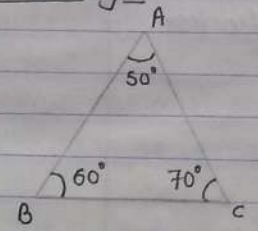 A
50°
60° 70°
B C